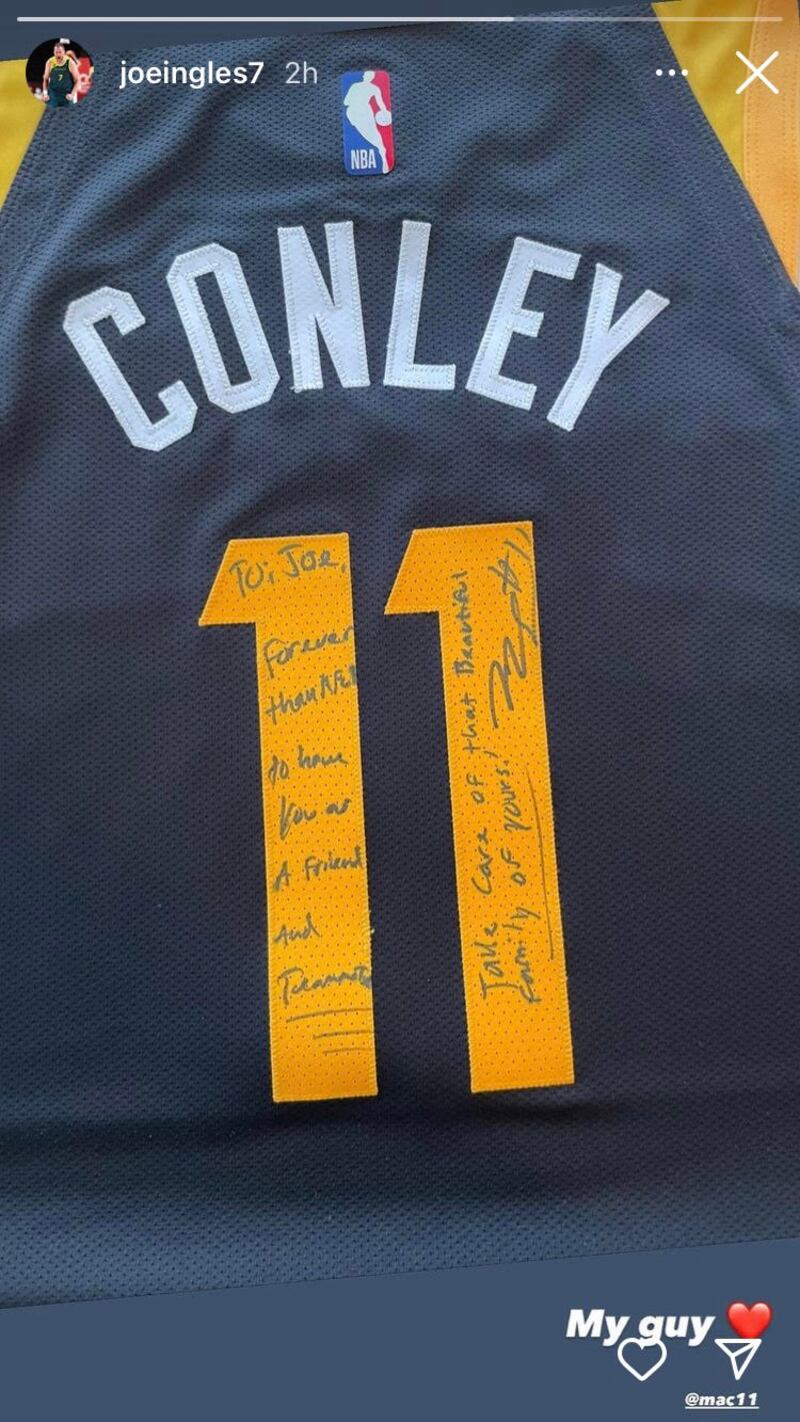 joeingles7 2h
NBA
CONLEY
11
To: Joe,
Forever
thankful
to have
You as
A Friend
And
Teammate
Take Care of that Beautiful
Family of yours!
My guy ❤️
@mac11